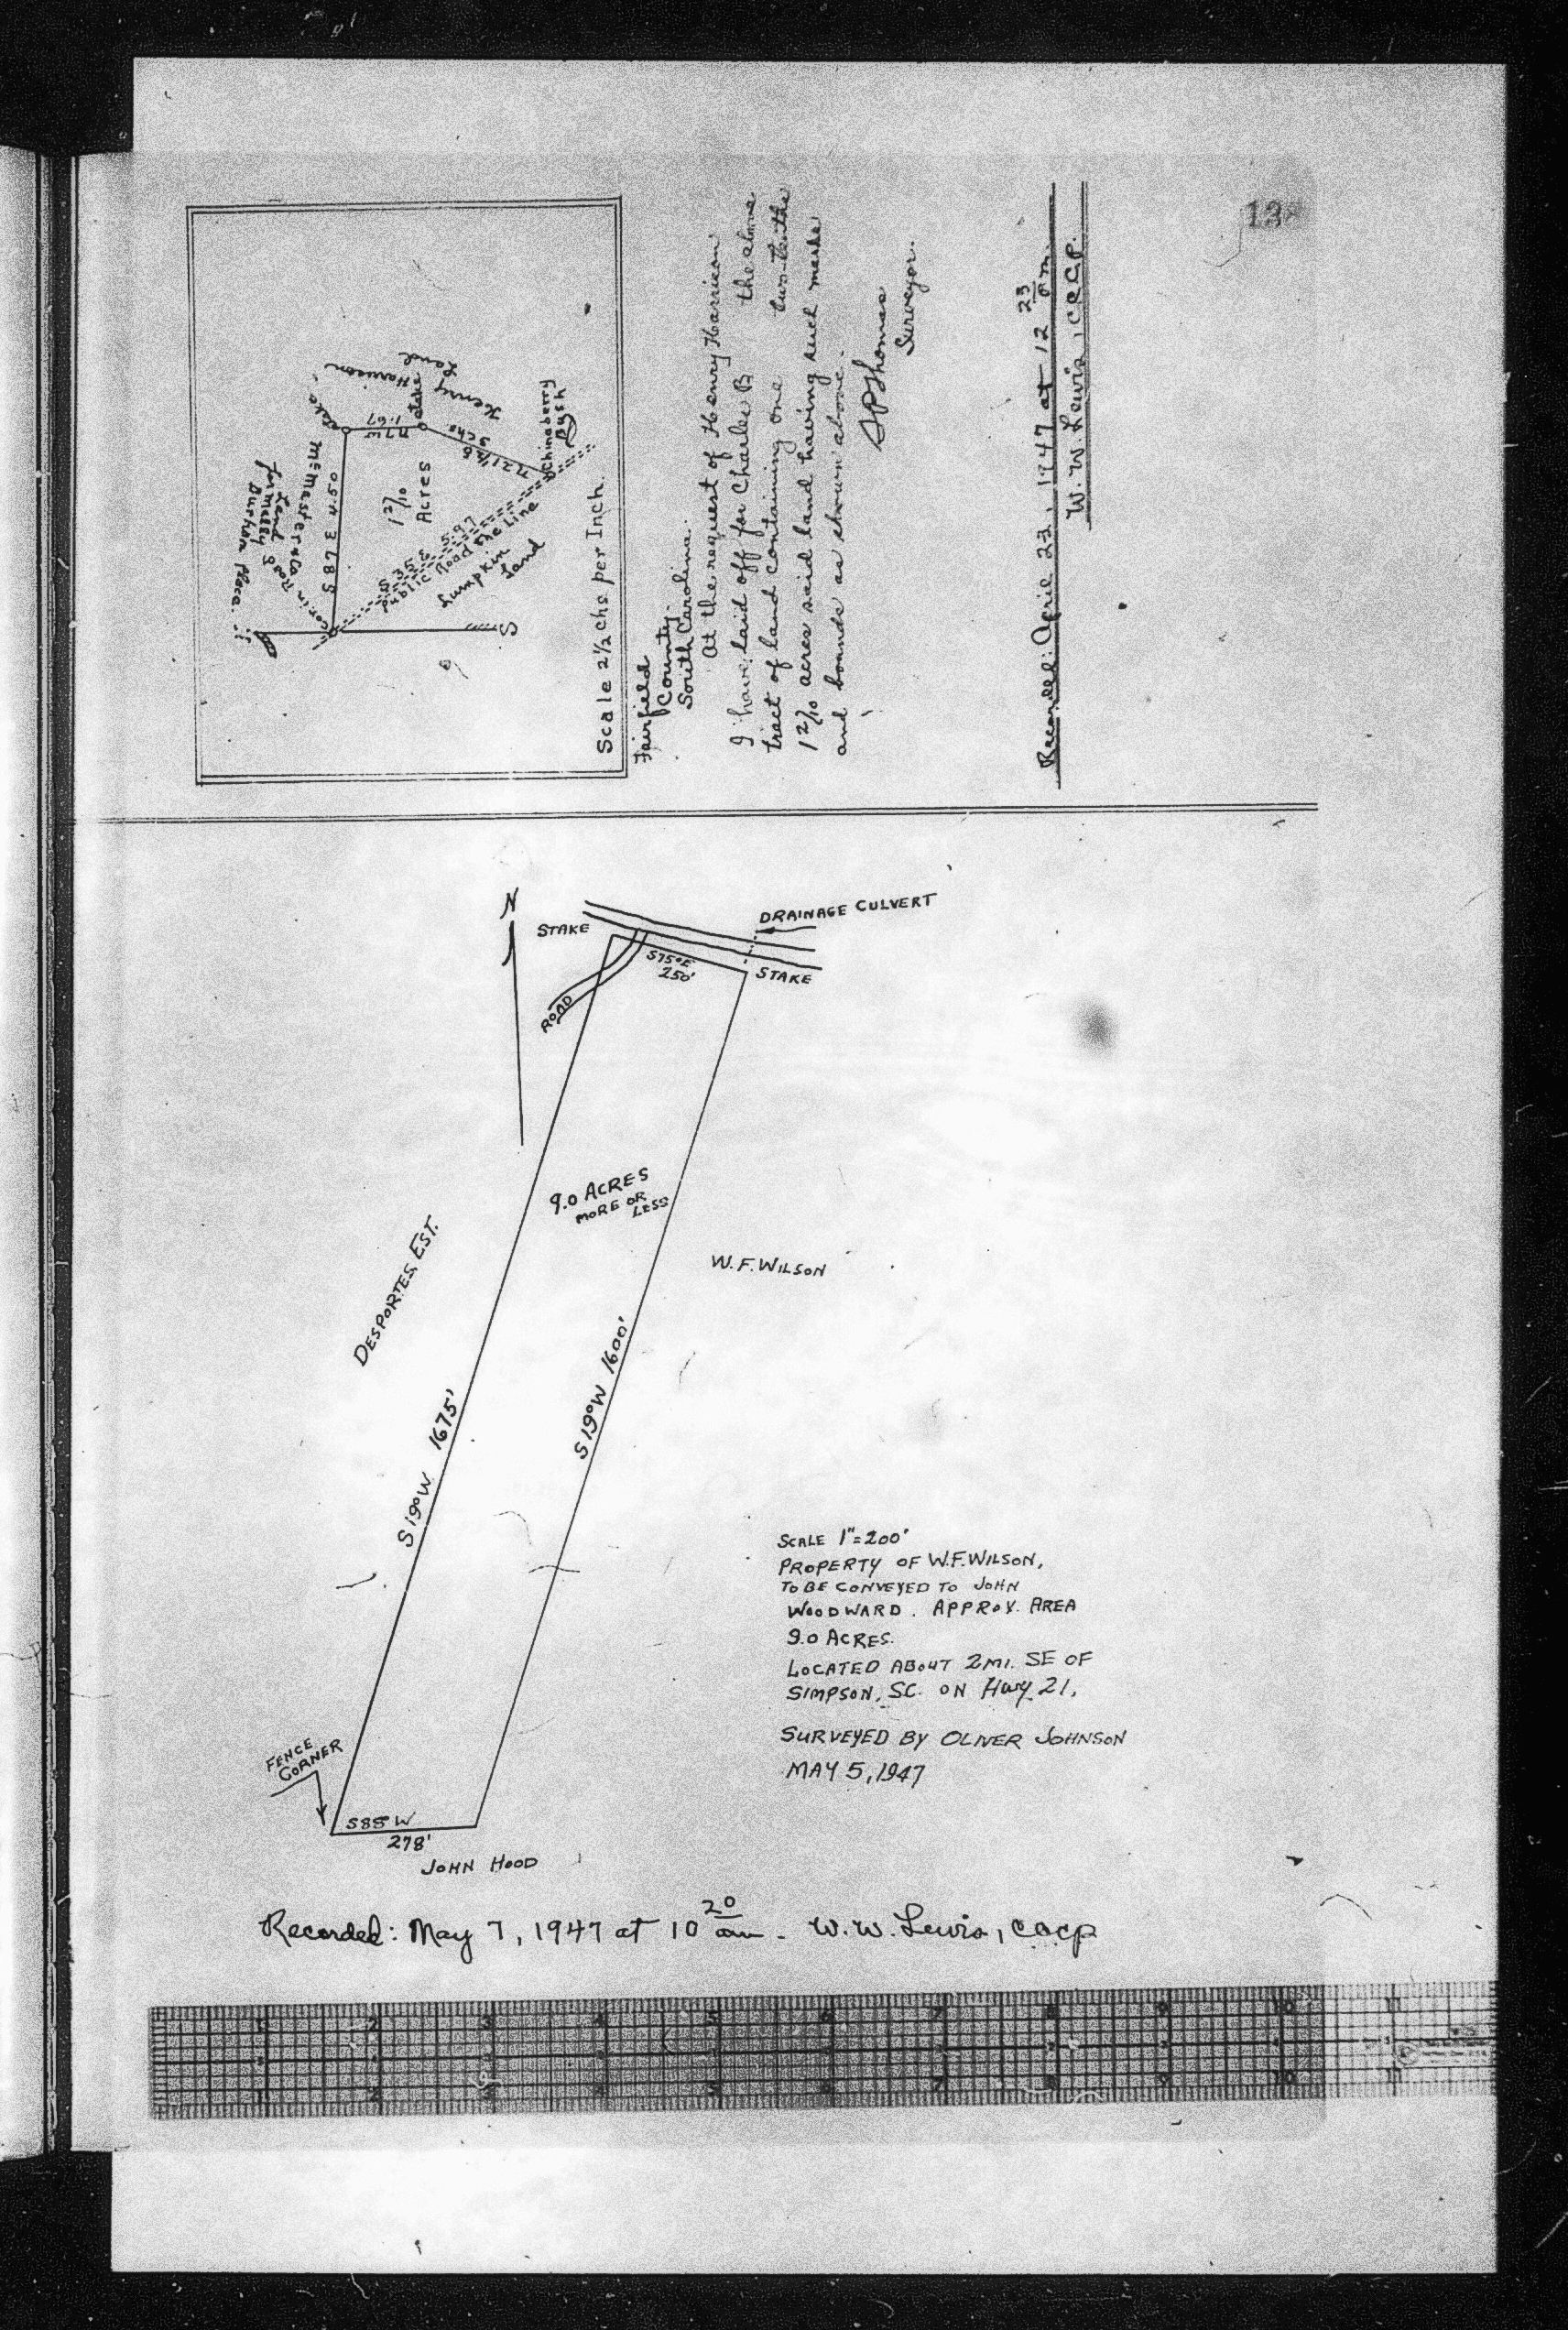 13
Stake
N7W
1.67
Stake
Henry Harrison
Land
N 21½ E
5 chs
Chinaberry
Bush
McMaster & Co
Land
formerly
Durham Place.
1 2/10
Acres
S 35 E 5.97
Public Road the Line
Lumpkin
Land
Scale 2½ chs per Inch.
Fairfield
County.
South Carolina.
At the request of Henry Harrison
I have laid off for Charles B the above
tract of land containing one two-tenths
1 2/10 acres said land having such marks
and bounds as shown above.
Thomas
Surveyor.
Recorded: April 23, 1947 at 12 23 P.m.
W. W. Lewis, CCCP.
N
STAKE
DRAINAGE CULVERT
S75°E
250'
STAKE
ROAD
9.0 ACRES
MORE OR
LESS
DESPORTES EST.
W.F. WILSON
S19°W 1675'
S19°W 1600'
SCALE 1"=200'
PROPERTY OF W.F. WILSON,
TO BE CONVEYED TO JOHN
WOODWARD. APPROX. AREA
9.0 ACRES.
LOCATED ABOUT 2 MI. SE OF
SIMPSON, SC. ON Hwy 21,
SURVEYED BY OLIVER JOHNSON
MAY 5, 1947
FENCE
CORNER
S88°W
278'
JOHN HOOD
Recorded: May 7, 1947 at 10 20 am. W.W. Lewis, CCCP
1 2 3 4 5 6 7 8 9 10 11